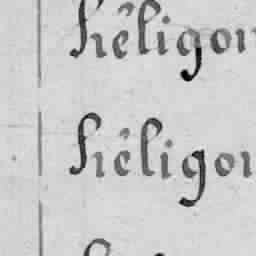 hêligon
hêligon